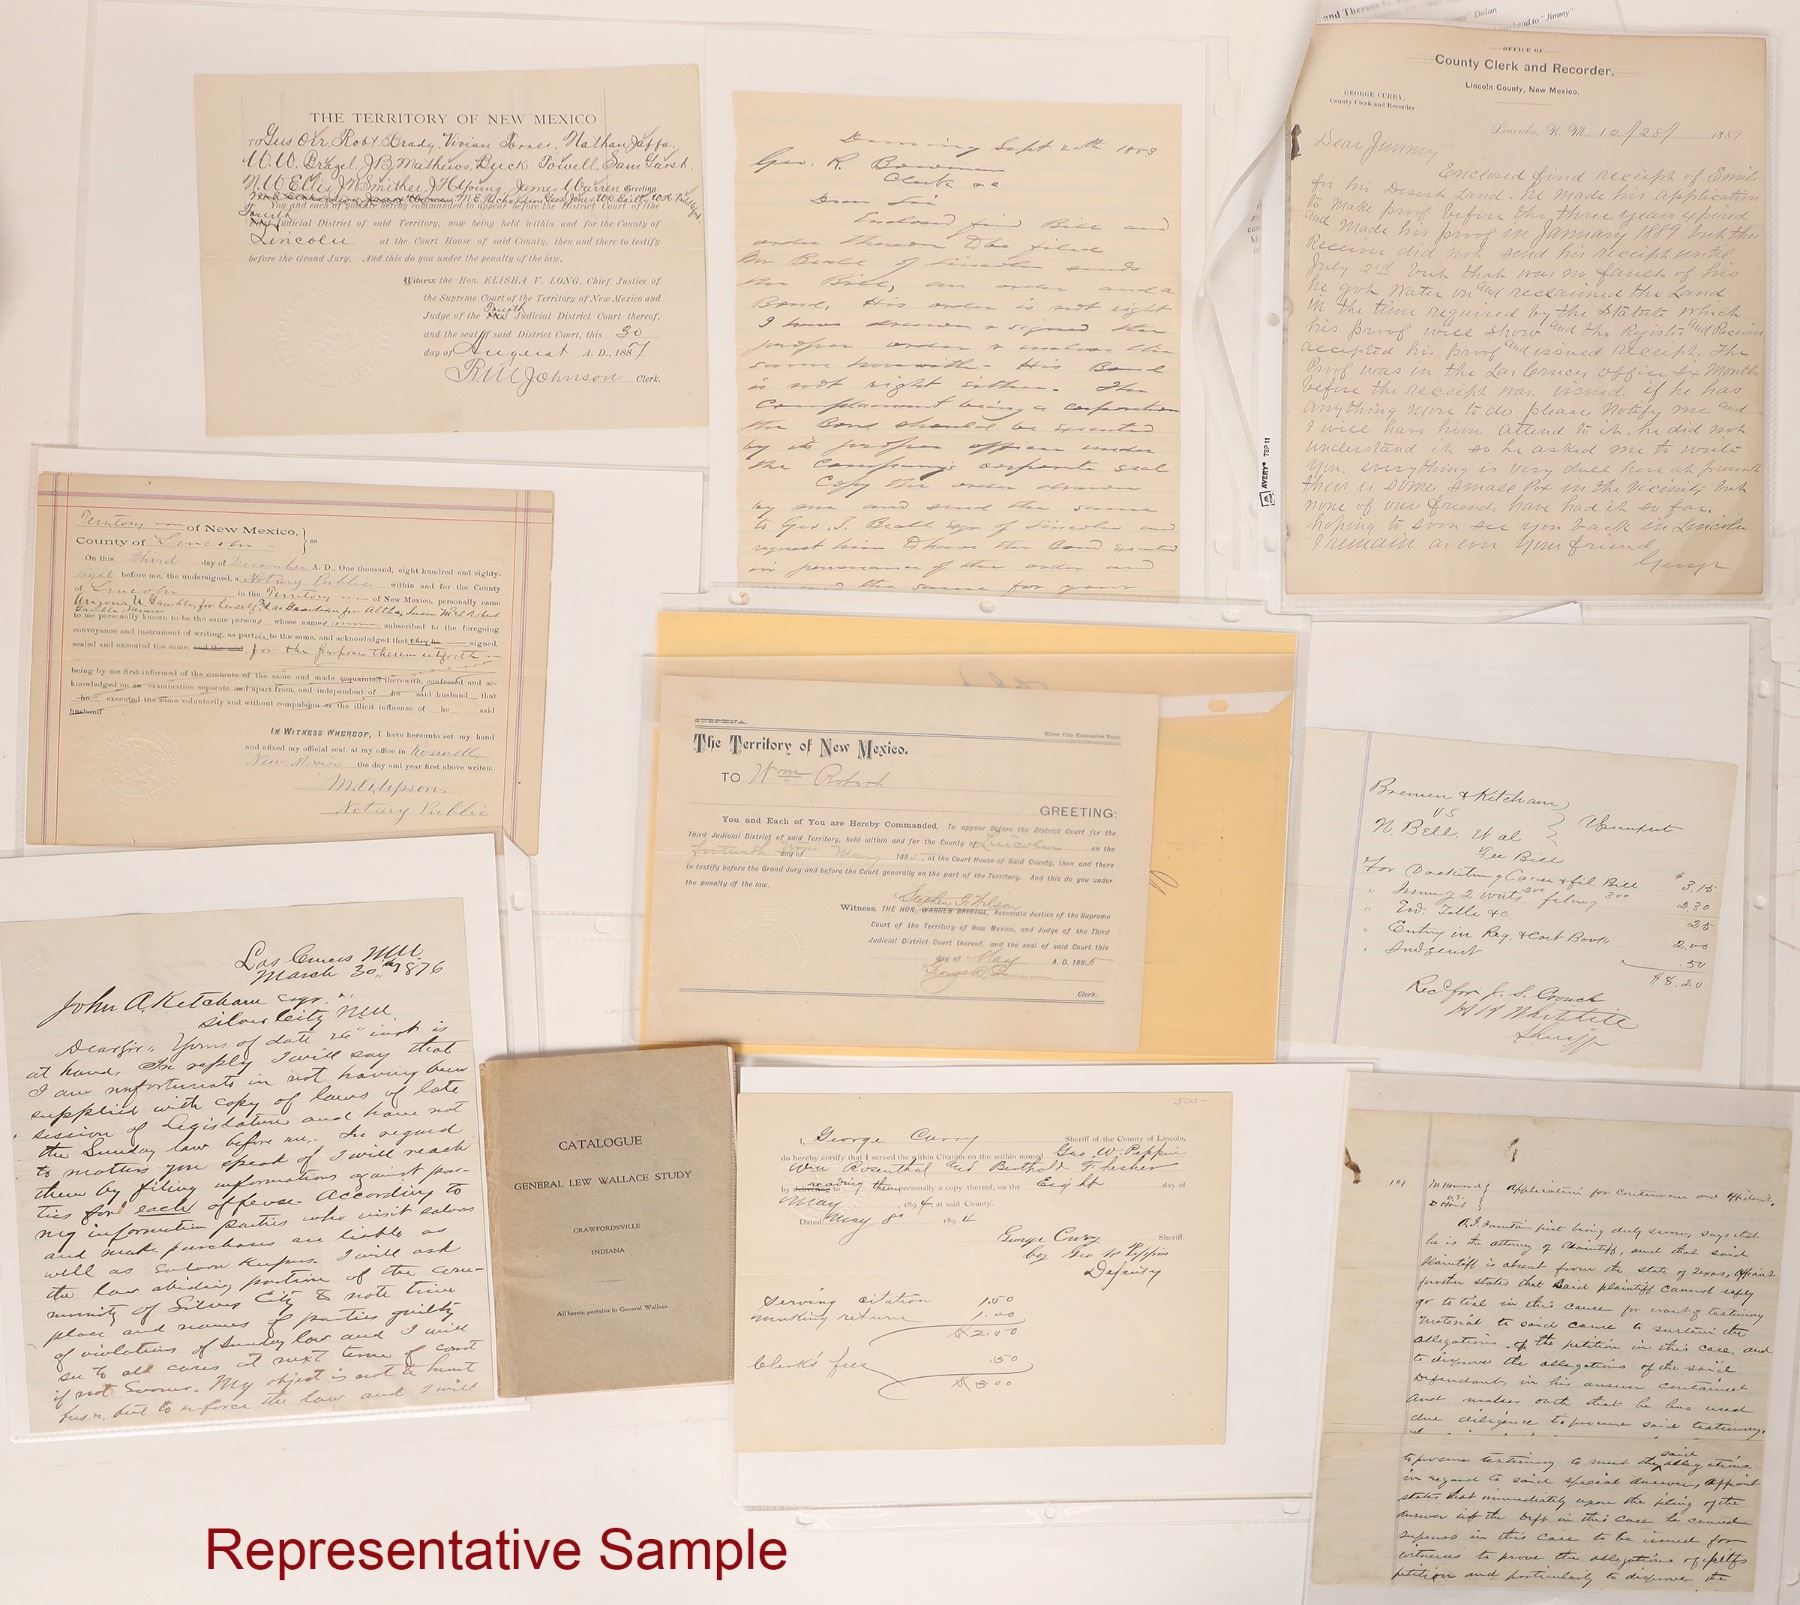 THE TERRITORY OF NEW MEXICO
TO Gus Orr, Robt. Brady, Vivian Torres, Nathan Jaffa,
W.W. Brazel, J B Mathews, Buck Powell, Sam
N. W Ellis, J H Young, James Warren Greeting:
You and each of you are hereby commanded to appear before the District Court of the
Fourth
Judicial District of said Territory, now being held within and for the County of
Lincoln at the Court House of said County, then and there to testify
before the Grand Jury. And this do you under the penalty of the law.
Witness the Hon. ELISHA V. LONG, Chief Justice of
the Supreme Court of the Territory of New Mexico and
Fourth
Judge of the Judicial District Court thereof,
and the seal of said District Court, this 30
day of August A. D., 188
Johnson Clerk.
Deming Sept 20th 1883
Geo. R. Bowman
Clerk &c
Dear Sir
Enclosed find Bill and
order thereon to be filed
Mr Beall of Lincoln sends
the Bill, an order and a
Bond. His order is not right
I have drawn & signed the
proper order & enclose the
same herewith. His Bond
is not right either. The
Complainant being a corporation
the Bond should be executed
by its proper officer under
the Company's corporate seal
Copy the order drawn
by me and send the same
to Geo. S. Beall Esqr of Lincoln and
request him to have the Bond executed
in pursuance of the order and
the same for your
OFFICE OF
County Clerk and Recorder,
Lincoln County, New Mexico.
GEORGE CURRY,
County Clerk and Recorder.
Lincoln, N. M. 12/28/ 1889
Dear Jimmy
Enclosed find receipt of Emils
for his Desert Land. he made his application
to make proof before the three years expired
and made his proof in January 1889 but the
Receiver did not send his receipt until
July 2nd but that was no fault of his
he got water on and reclaimed the Land
in the time required by the Statute which
his proof will show and the Register and Receiver
accepted his proof and issued receipt. The
Proof was in the Las Cruces office six Months
before the receipt was issued. if he has
anything more to do please Notify me and
I will have him attend to it. he did not
understand it so he asked me to write
you. everything is very dull here at present
their is some small Pox in the vicinity but
none of our friends have had it so far.
hoping to soon see you back in Lincoln
I remain as ever your friend
George
AVERY® TSP11
Territory of New Mexico,
County of Lincoln } ss
On this third day of December A. D. One thousand, eight hundred and eighty-
eight before me, the undersigned, a Notary Public within and for the County
of Lincoln in the Territory of New Mexico, personally came
to me personally known to be the same persons whose names subscribed to the foregoing
conveyance and instrument of writing, as parties to the same, and acknowledged that they signed,
sealed and executed the same, and the said for the purposes therein set forth
being by me first informed of the contents of the same and made acquainted therewith, confessed and ac-
knowledged on an examination separate and apart from, and independent of he said husband that
he executed the same voluntarily and without compulsion or the illicit influence of he said
husband
IN WITNESS WHEREOF, I have hereunto set my hand
and affixed my official seal, at my office in Roswell
New Mexico the day and year first above written.
M. A. Upson,
Notary Public
SUBPŒNA.
The Territory of New Mexico.
TO Wm
GREETING:
You and Each of You are Hereby Commanded, To appear before the District Court for the
Third Judicial District of said Territory, held within and for the County of Lincoln on the
day of May 188 , at the Court House of Said County, then and there
to testify before the Grand Jury and before the Court generally on the part of the Territory. And this do you under
the penalty of the law.
Stephen F. Wilson
Witness, THE HON. WARREN BRISTOL, Associate Justice of the Supreme
Court of the Territory of New Mexico, and Judge of the Third
Judicial District Court thereof, and the seal of said Court this
day of May A. D. 1885
Clerk.
Bremen & Ketcham
vs
N. Bell, et al
Fee Bill
For Docketing Cause & fil. Bill $3.15
" Issuing 2 writs 2.00 filing 3.00 2.30
" End. Title &c 25
" Entry in Reg. & Cost Book 2.00
" Judgment .50
$8.20
Recd for J. S. Crouch
H H Whitehill
Sheriff
Las Cruces NM
March 30th 1876
John A. Ketcham esqr.
Silver City NM.
Dear Sir, Yours of date 26" inst is
at hand. In reply I will say that
I am unfortunate in not having been
supplied with copy of laws of late
session of Legislature and have not
the Sunday law before me. In regard
to matters you speak of I will reach
them by filing informations against par-
ties for each offense. According to
my information parties who visit saloons
and make purchases are liable as
well as Saloon Keepers. I will ask
the law abiding portion of the com-
munity of Silver City to note time
place and names of parties guilty
of violations of Sunday law and I will
see to all cases at next term of court
if not sooner. My object is not to hunt
but to enforce the law and I will
CATALOGUE
GENERAL LEW WALLACE STUDY
CRAWFORDSVILLE
INDIANA
All herein pertains to General Wallace
500-
I, George Curry Sheriff of the County of Lincoln,
do hereby certify that I served the within Citation on the within named Geo W. Peppin
Wm Rosenthal and Berthold
by reading them personally a copy thereof, on the Eight day of
May , 1894, at said County.
Dated May 8" 1894
George Curry Sheriff.
by Geo W Peppin
Deputy
Serving citation 1.50
making return 1.00
$2.50
Clerk's fees .50
$3.00
vs. } Application for Continuance and affidavit.
A. J. Fountain first being duly sworn, says that
he is the attorney of Plaintiff, and that said
plaintiff is absent from the state of Texas, affiant
further states that said plaintiff cannot safely
go to trial in this cause for want of testimony
material to said cause to sustain the
allegations of the petition in this case, and
to disprove the allegations of the said
Defendant, in his answer contained
and makes oath that he has used
due diligence to procure said testimony.
to procure testimony to meet the said allegations
in regard to said special answer, affiant
states that immediately upon the filing of the
answer of the Deft in this case he caused
supenas in this case to be issued for
witnesses to prove the allegations of pltfs
petition and particularly to disprove the
Representative Sample